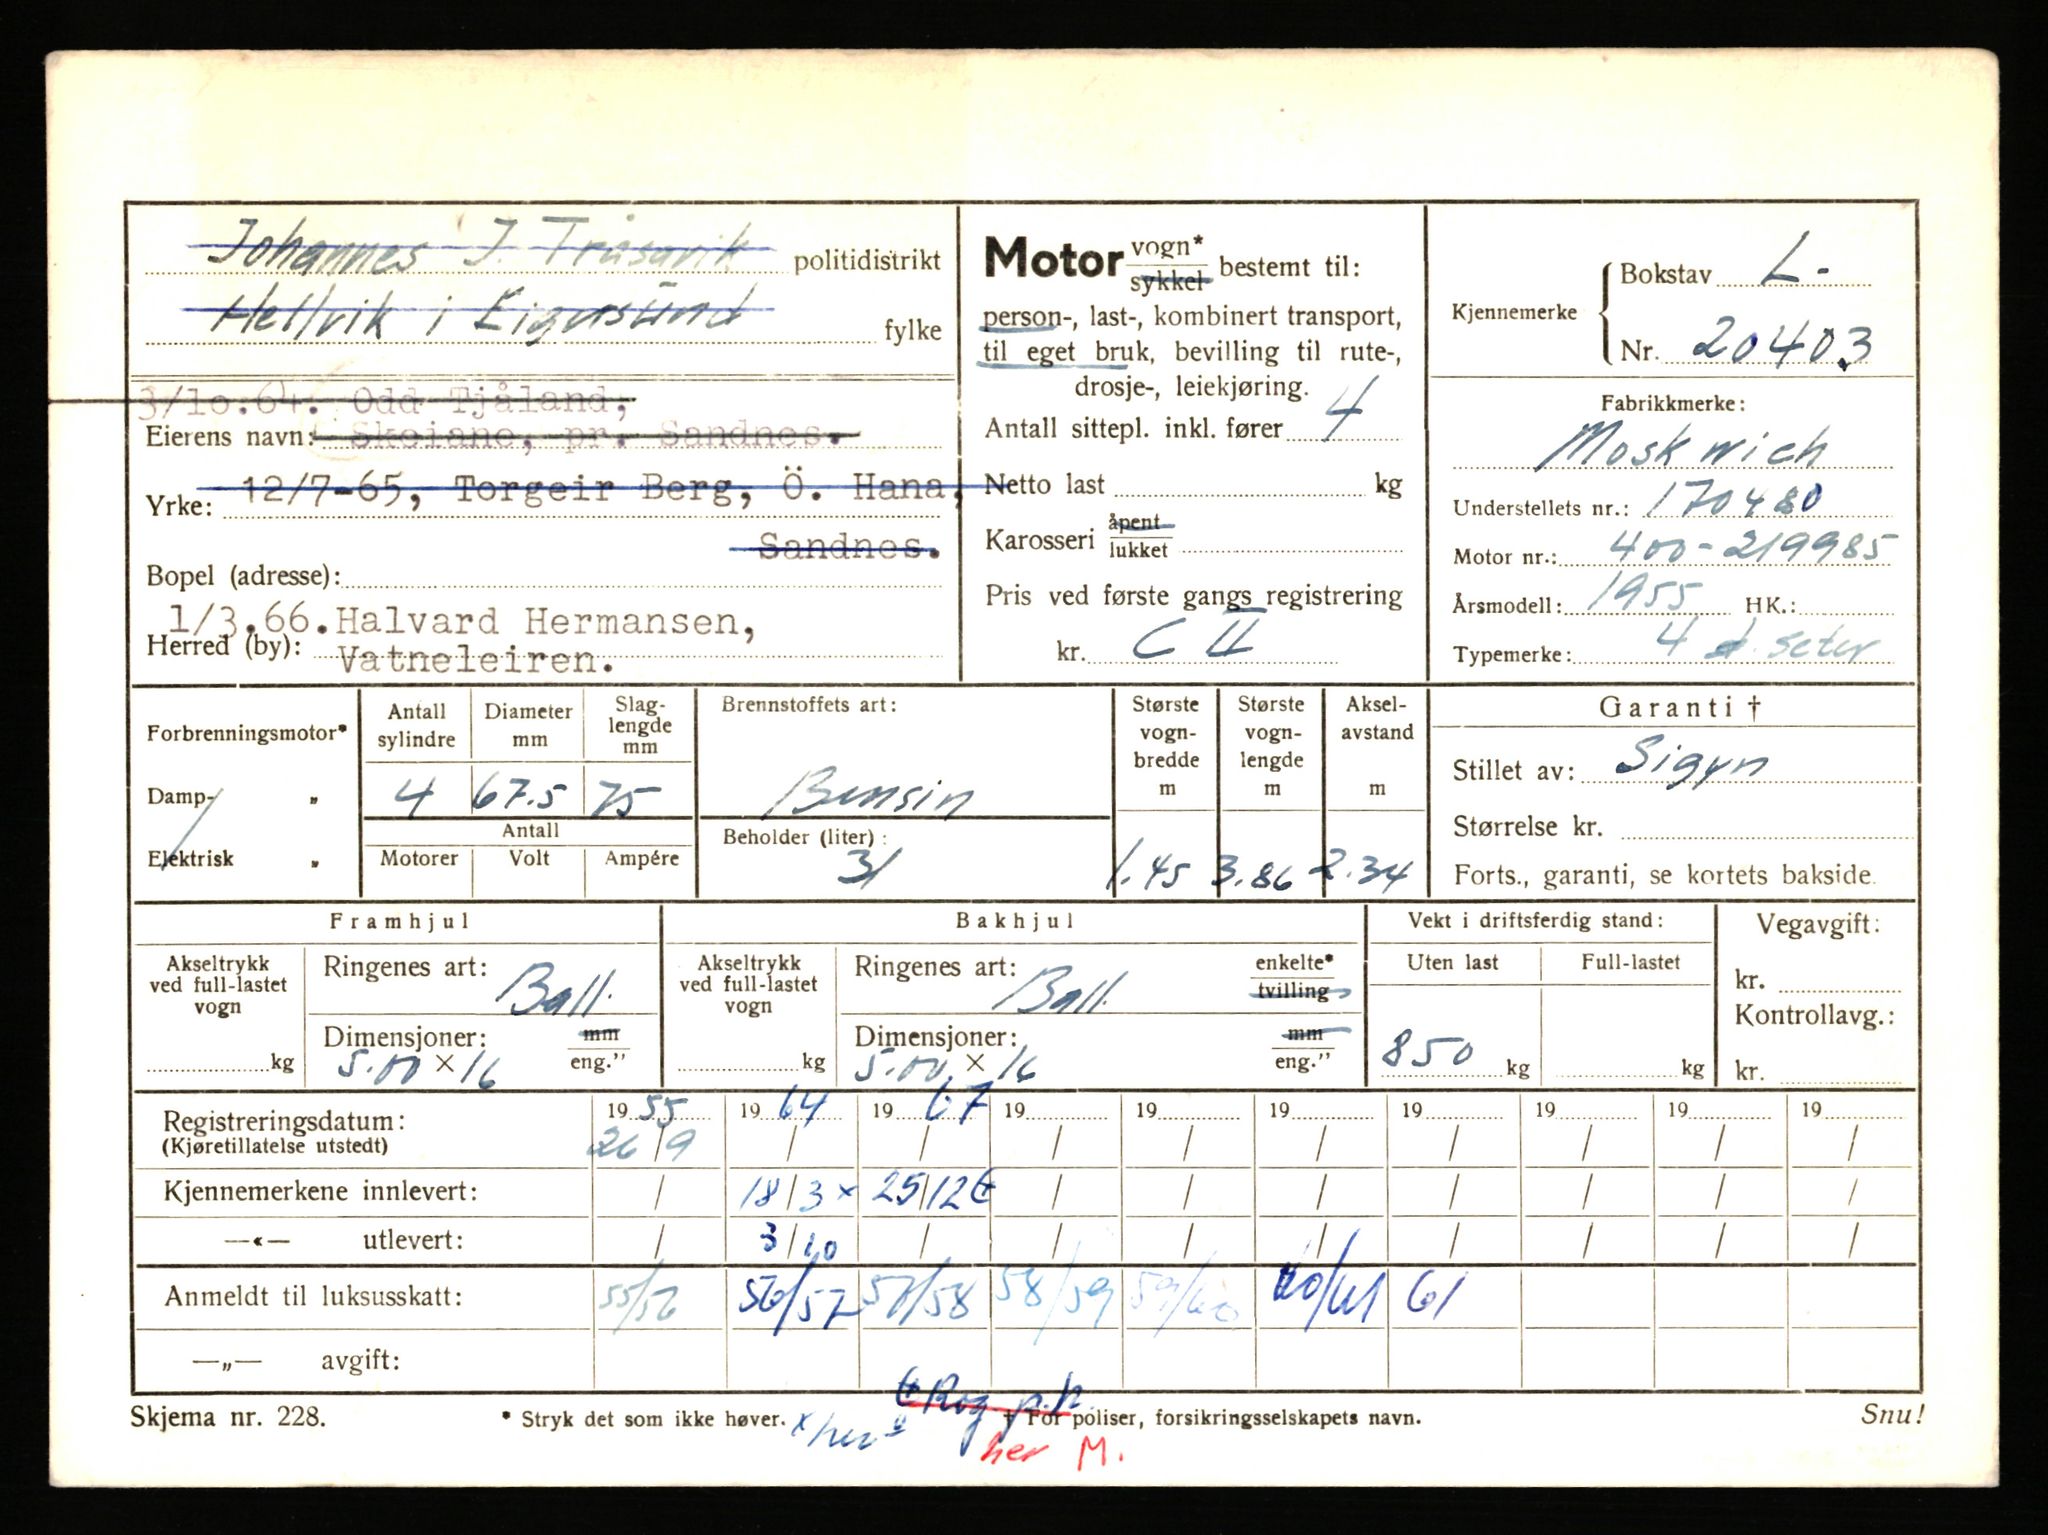 Johannes J. Tråsavik politidistrikt
Hellvik i Eigersund fylke
3/10.64. Odd Tjåland,
Eierens navn: Skeiane, pr. Sandnes.
Yrke: 12/7-65, Torgeir Berg, Ö. Hana,
Sandnes.
Bopel (adresse):
1/3.66. Halvard Hermansen,
Herred (by): Vatneleiren.
Motor vogn* / sykkel bestemt til:
person-, last-, kombinert transport,
til eget bruk, bevilling til rute-,
drosje-, leiekjøring.
Antall sittepl. inkl. fører 4
Netto last kg
Karosseri åpent / lukket
Pris ved første gangs registrering
kr. C II
Kjennemerke
Bokstav L-
Nr. 20403
Fabrikkmerke:
Moskwich
Understellets nr.: 170480
Motor nr.: 400-219985
Årsmodell: 1955 HK.:
Typemerke: 4 seter
Forbrenningsmotor*
Damp- „
Elektrisk „
Antall sylindre
4
Diameter mm
67.5
Slaglengde mm
75
Antall
Motorer Volt Ampére
Brennstoffets art:
Bensin
Beholder (liter):
31
Største vognbredde m
1.45
Største vognlengde m
3.86
Akselavstand m
2.34
Garanti †
Stillet av: Sigyn
Størrelse kr.
Forts., garanti, se kortets bakside.
Framhjul
Akseltrykk ved full-lastet vogn
kg
Ringenes art: Ball.
Dimensjoner: mm / eng.”
5.00 × 16
Bakhjul
Akseltrykk ved full-lastet vogn
kg
Ringenes art: Ball. enkelte* / tvilling
Dimensjoner: mm / eng.”
5.00. × 16
Vekt i driftsferdig stand:
Uten last Full-lastet
850 kg kg
Vegavgift:
kr.
Kontrollavg.:
kr.
Registreringsdatum: 19 55 19 64 19 67 19 19 19 19 19 19 19
(Kjøretillatelse utstedt) 26/9 / / / / / / / / /
Kjennemerkene innlevert: / 18/3 x 25/12 / / / / / / /
—«— utlevert: / 3/10 / / / / / / / /
Anmeldt til luksusskatt: 55/56 56/57 57/58 58/59 59/60 60/61 61
—„— avgift:
Rog p.k.
Skjema nr. 228. * Stryk det som ikke høver. x her † For poliser, forsikringsselskapets navn. Snu!
her M.